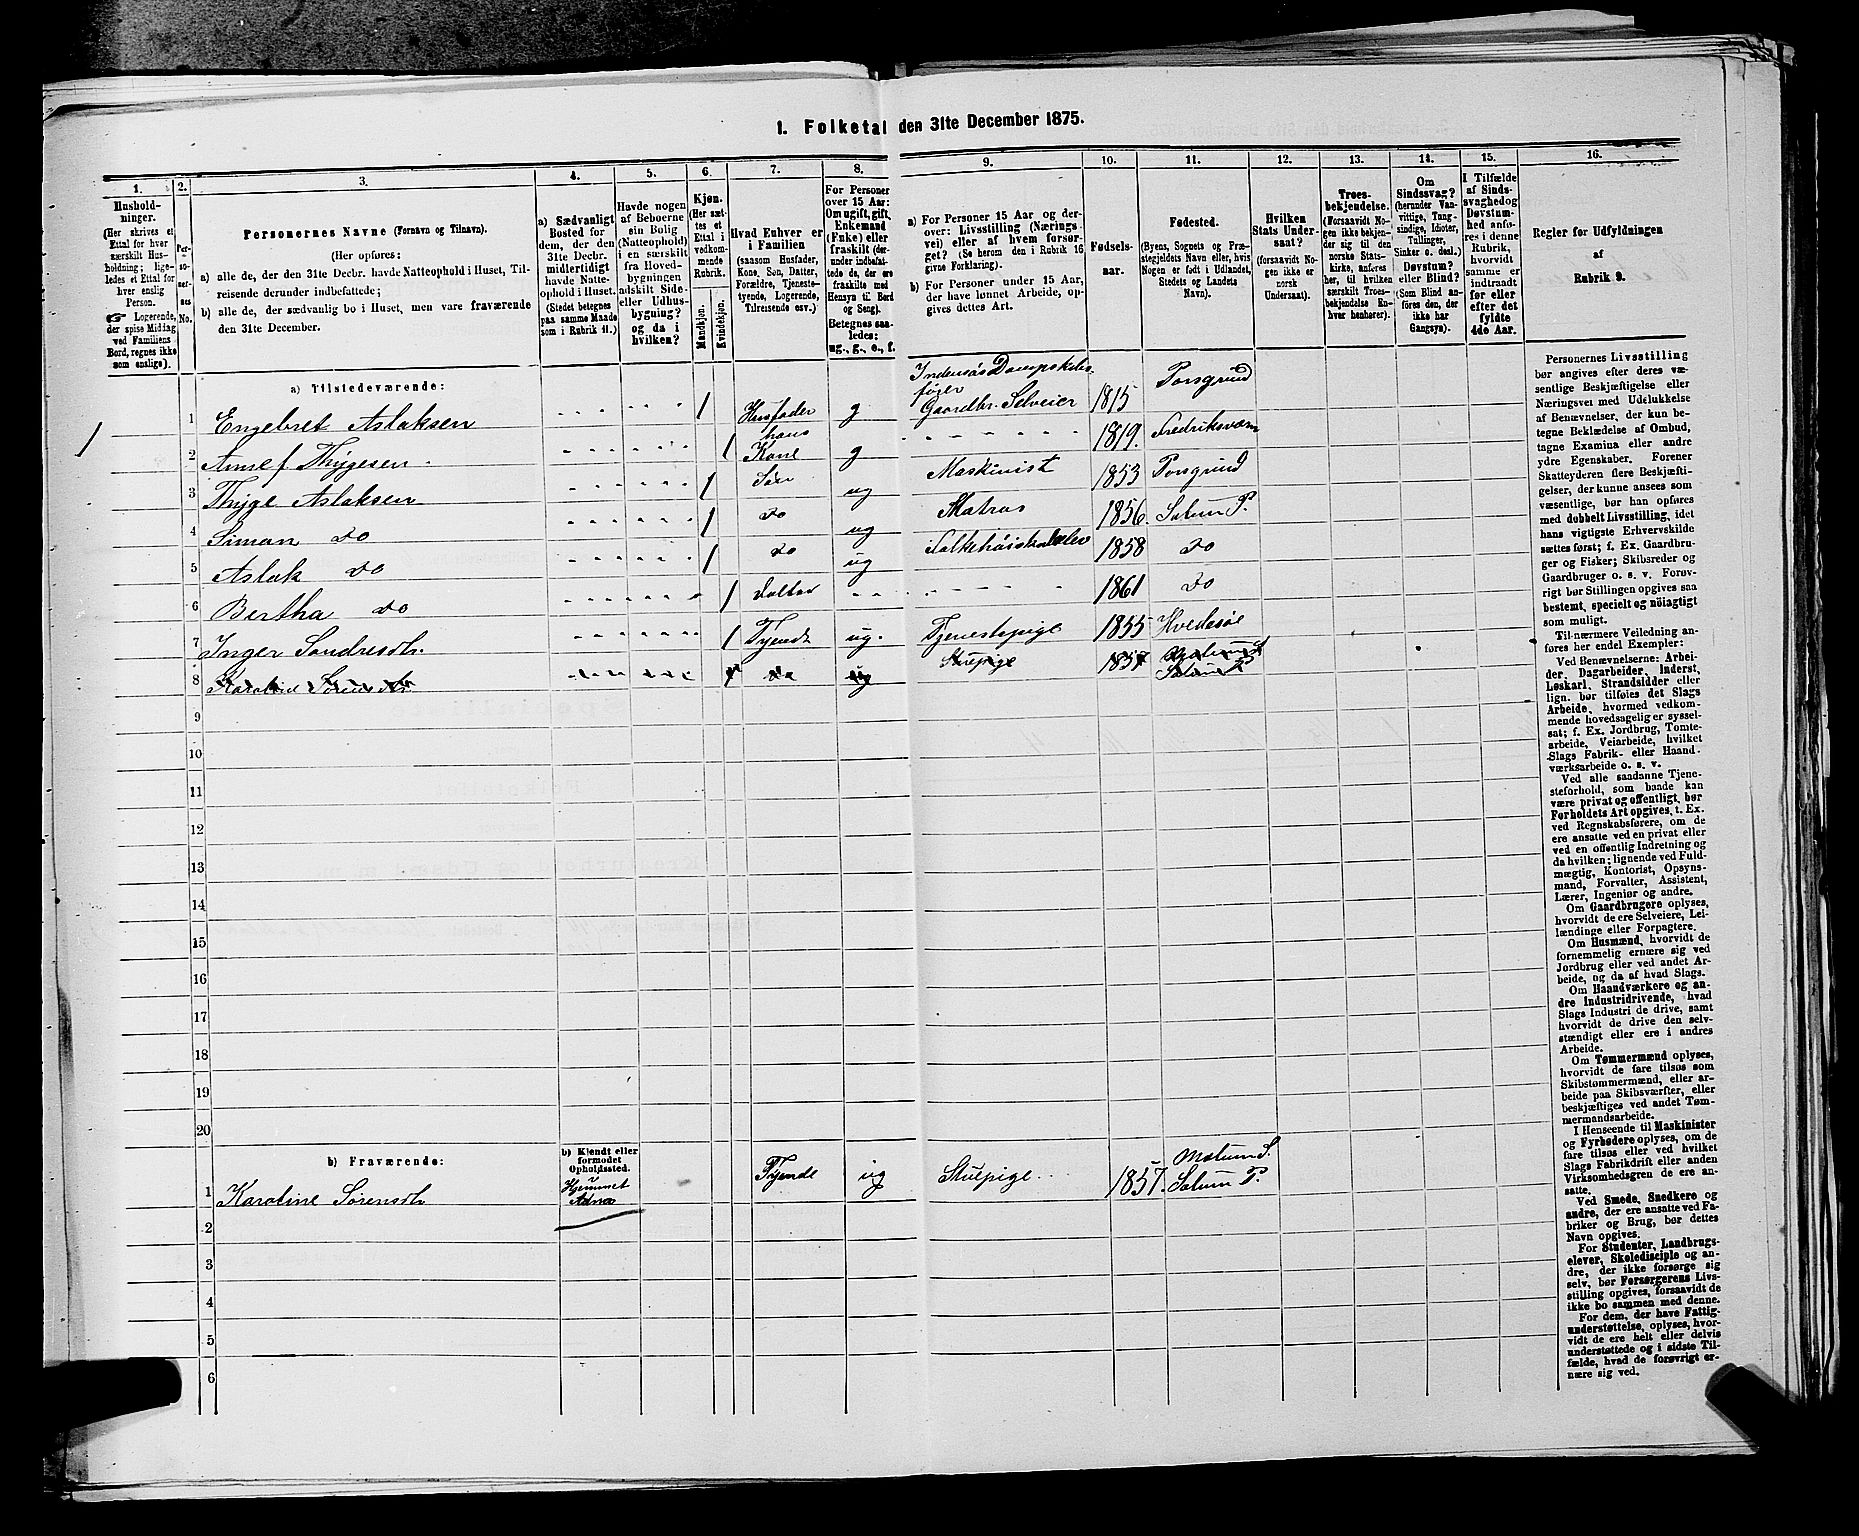 1. Folketal den 31te December 1875.
1.
2.
3.
4.
5.
6.
7.
8.
9.
10.
11.
12.
13.
14.
15.
16.
Hushold-
ninger.
(Her skrives et
Ettal for hver
særskilt Hus-
holdning; lige-
ledes et Ettal for
hver enslig
Person.
☞ Logerende,
der spise Middag
ved Familiens
Bord, regnes ikke
som enslige).
Per-
so-
ner-
nes
No.
Personernes Navne (Fornavn og Tilnavn).
(Her opføres:
a) alle de, der den 31te Decbr. havde Natteophold i Huset, Til-
reisende derunder indbefattede;
b) alle de, der sædvanlig bo i Huset, men vare fraværende
den 31te December.
a) Sædvanligt
Bosted for
dem, der den
31te Decbr.
midlertidigt
havde Natte-
ophold i Huset.
(Stedet betegnes
paa samme Maade
som i Rubrik 11.)
Havde nogen
af Beboerne
sin Bolig
(Natteophold)
i en særskilt
fra Hoved-
bygningen
adskilt Side-
eller Udhus-
bygning?
og da i
hvilken?
Kjøn.
(Her sæt-
tes et
Ettal i
vedkom-
mende
Rubrik.
Mandkjøn.
Kvindekjøn.
Hvad Enhver er
i Familien
(saasom Husfader,
Kone, Søn, Datter,
Forældre, Tjeneste-
tyende, Logerende,
Tilreisende osv.)
For Personer
over 15 Aar:
Om ugift, gift,
Enkemand
(Enke) eller
fraskilt (der-
under indbefat-
tede de, der ere
fraskilte med
Hensyn til Bord
og Seng).
Betegnes saa-
ledes:
ug., g., e., f.
a) For Personer 15 Aar og der-
over: Livsstilling (Nærings-
vei) eller af hvem forsør-
get. (Se herom den i Rubrik 16
givne Forklaring).
b) For Personer under 15 Aar,
der have lønnet Arbeide, op-
gives dettes Art.
Fødsels-
aar.
Fødested.
(Byens, Sognets og Præ-
stegjeldets Navn eller, hvis
Nogen er født i Udlandet,
Stedets og Landets
Navn).
Hvilken
Stats Under-
saat?
(forsaavidt No-
gen ikke er
norsk
Undersaat).
Troes-
bekjendelse.
(Forsaavidt No-
gen ikke bekjen-
der sig til den
norske Stats-
kirke, anføres
her, til hvilken
særskilt Troes-
bekjendelse En-
hver henhører).
Om
Sindssvag?
(herunder Van-
vittige, Tung-
sindige, Idioter,
Tullinger,
Sinker o. desl.)
Døvstum?
eller Blind?
(Som Blind an-
føres den, der
ikke har
Gangsyn).
I Tilfælde
af Sinds-
svaghed og
Døvstum-
hed anfø-
res i denne
Rubrik,
hvorvidt
samme er
indtraadt
før eller
efter det
fyldte
4de Aar.
Regler for Udfyldningen
af
Rubrik 9.
a) Tilstedeværende:
1 1 Engebret Aslaksen 1 Husfader g Dampskibs Gaardbr. Selveier 1815 Porsgrund
2 Anne f Thygesen 1 hans Kone g 1819. Fredriksværn
3 Thyge Aslaksen 1 Søn ug Maskinist 1853 Porsgrund
4 Simon do 1 do ug Matros 1856. Solum P.
5 Aslak do 1 do ug Folkehøiskoleelev 1858 do
6 Bertha do 1 datter 1861 do
7 Inger Sondresdtr. 1 Tyende ug. Tjenestepige 1855 Hvedesøe
8 Karoline Sørensdtr 1 do ug Stuepige 1857 Solum P
9
10
11
12
13
14
15
16
17
18
19
20
b) Fraværende:
b) Kjendt eller
formodet
Opholdssted.
1 Karoline Sørensdtr Hjemmet Tyende ug Stuepige 1857. Solum P.
2
3
4
5
6
Personernes Livsstilling
bør angives efter deres væ-
sentlige Beskjæftigelse eller
Næringsvei med Udelukkelse
af Benævnelser, der kun be-
tegne Beklædelse af Ombud,
tagne Examina eller andre
ydre Egenskaber. Forener
Skatteyderen flere Beskjæfti-
gelser, der kunne ansees som
væsentlige, bør han opføres
med dobbelt Livsstilling, idet
hans vigtigste Erhvervskilde
sættes først; f. Ex. Gaardbru-
ger og Fisker; Skibsreder og
Gaardbruger o. s. v. Forøv-
rigt bør Stillingen opgives saa
bestemt, specielt og nøiagtigt
som muligt.
Til nærmere Veiledning an-
føres her endel Exempler:
Ved Benævnelserne: Arbei-
der, Dagarbeider, Inderst,
Løskarl, Strandsidder eller
lign. bør tilføies det Slags
Arbeide, hvormed vedkom-
mende hovedsagelig er syssel-
sat; f. Ex. Jordbrug, Tomte-
arbeide, Veiarbeide, hvilket
Slags Fabrik- eller Haand-
værksarbeide o. s. v.
Ved alle saadanne Tjene-
steforhold, som baade kan
være privat og offentligt, bør
Forholdets Art opgives, t. Ex.
ved Regnskabsførere, om de
ere ansatte ved en privat eller
ved en offentlig Indretning og
da hvilken; lignende ved Fuld-
mægtig, Kontorist, Opsyns-
mand, Forvalter, Assistent,
Lærer, Ingeniør og andre.
Om Gaardbrugere oplyses,
hvorvidt de ere Selveiere, Lei-
lændinge eller Forpagtere.
Om Husmænd, hvorvidt de
fornemmelig ernære sig ved
Jordbrug eller ved andet Ar-
beide, og da af hvad Slags.
Om Haandværkere og an-
dre Industridrivende, hvad
Slags Industri de drive, samt
hvorvidt de drive den selv-
stændigt eller ere i andres
Arbeide.
Om Tømmermænd oplyses,
hvorvidt de fare tilsøs som
Skibstømmermænd, eller ar-
beide paa Skibsværfter, eller
beskjæftiges ved andet Tøm-
mermandsarbeide.
I Henseende til Maskinister
og Fyrbødere oplyses, om de
fare tilsøs eller ved hvilket
Slags Fabrikdrift eller anden
Virksomhedsgren de ere an-
satte.
Ved Smede, Snedkere og
andre, der ere ansatte ved Fa-
briker og Brug, bør dettes
Navn opgives.
For Studenter, Landbrugs-
elever, Skoledisciple og an-
dre, der ikke forsørge sig
selv, bør Forsørgerens Livs-
stilling opgives, forsaavidt de
ikke bo sammen med denne.
For dem, der have Fattig-
understøttelse, oplyses, hvor-
vidt de ere helt eller delvis
understøttede og i sidste Til-
fælde, hvad de forøvrigt er-
nære sig ved.